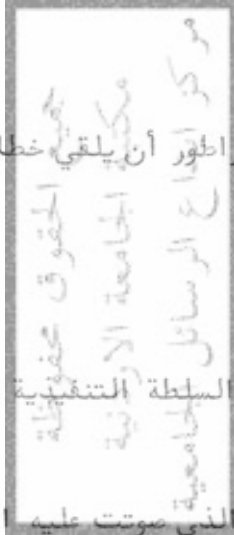 راطور أن يلقي خطا
السلطة التنفيذية
الذي صوتت عليه ا
جميع الحقوق محفوظة
مكتبة الجامعة الاردنية
مركز ايداع الرسائل الجامعية